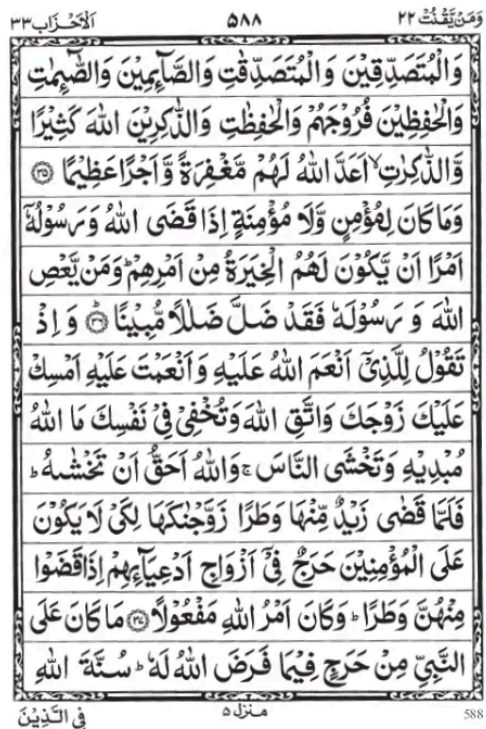 وَمَنْ يَّقْنُتْ ٢٢ ٥٨٨ اَلْاَحْزَاب ٣٣
وَالْمُتَصَدِّقِيْنَ وَالْمُتَصَدِّقٰتِ وَالصَّآئِمِيْنَ وَالصّٰٓئِمٰتِ
وَالْحٰفِظِيْنَ فُرُوْجَهُمْ وَالْحٰفِظٰتِ وَالذّٰكِرِيْنَ اللّٰهَ كَثِيْرًا
وَّالذّٰكِرٰتِ ۙ اَعَدَّ اللّٰهُ لَهُمْ مَّغْفِرَةً وَّاَجْرًا عَظِيْمًا ۝٣٥
وَمَا كَانَ لِمُؤْمِنٍ وَّلَا مُؤْمِنَةٍ اِذَا قَضَى اللّٰهُ وَرَسُوْلُهٗٓ
اَمْرًا اَنْ يَّكُوْنَ لَهُمُ الْخِيَرَةُ مِنْ اَمْرِهِمْ ؕ وَمَنْ يَّعْصِ
اللّٰهَ وَرَسُوْلَهٗ فَقَدْ ضَلَّ ضَلٰلًا مُّبِيْنًا ؕ۝٣٦ وَاِذْ
تَقُوْلُ لِلَّذِيْٓ اَنْعَمَ اللّٰهُ عَلَيْهِ وَاَنْعَمْتَ عَلَيْهِ اَمْسِكْ
عَلَيْكَ زَوْجَكَ وَاتَّقِ اللّٰهَ وَتُخْفِيْ فِيْ نَفْسِكَ مَا اللّٰهُ
مُبْدِيْهِ وَتَخْشَى النَّاسَ ۚ وَاللّٰهُ اَحَقُّ اَنْ تَخْشٰىهُ ؕ
فَلَمَّا قَضٰى زَيْدٌ مِّنْهَا وَطَرًا زَوَّجْنٰكَهَا لِكَيْ لَا يَكُوْنَ
عَلَى الْمُؤْمِنِيْنَ حَرَجٌ فِيْٓ اَزْوَاجِ اَدْعِيَآئِهِمْ اِذَا قَضَوْا
مِنْهُنَّ وَطَرًا ؕ وَكَانَ اَمْرُ اللّٰهِ مَفْعُوْلًا ۝٣٧ مَا كَانَ عَلَى
النَّبِيِّ مِنْ حَرَجٍ فِيْمَا فَرَضَ اللّٰهُ لَهٗ ؕ سُنَّةَ اللّٰهِ
فِي الَّذِيْنَ منزل ٥ 588